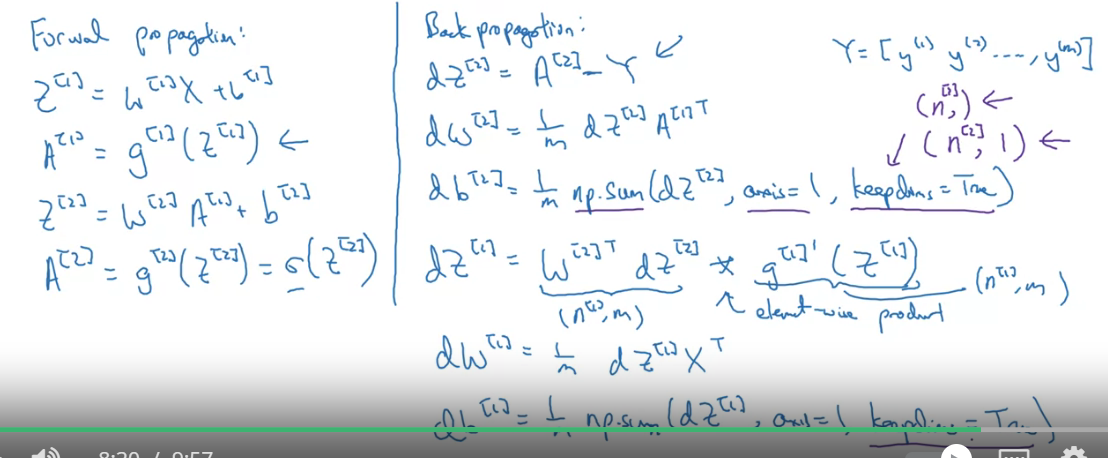 Forward propagation:
Z^[1] = W^[1]X + b^[1]
A^[1] = g^[1](Z^[1]) ←
Z^[2] = W^[2] A^[1] + b^[2]
A^[2] = g^[2](Z^[2]) = σ(Z^[2])
Back propagation:
dZ^[2] = A^[2] - Y ↙
Y = [y^(1) y^(2) ...., y^(m)]
dW^[2] = 1/m dZ^[2] A^[1]T
(n^[2],) ←
↙ (n^[2], 1) ←
db^[2] = 1/m np.sum(dZ^[2], axis=1, keepdims=True)
dZ^[1] = W^[2]T dZ^[2] * g^[1]'(Z^[1])
(n^[1], m) ↖ element-wise product (n^[1], m)
dW^[1] = 1/m dZ^[1] X^T
db^[1] = 1/m np.sum(dZ^[1], axis=1, keepdims=True)
8:20 / 9:57